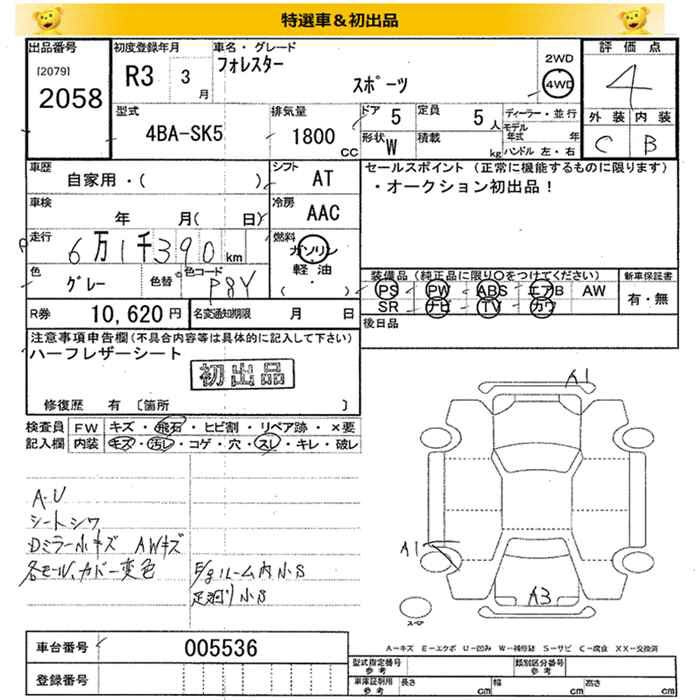 特選車＆初出品
出品番号
[2079]
2058
初度登録年月
R3 3 月
車名・グレード
フォレスター
スポーツ
2WD
4WD
評価点
4
外装 内装
C B
型式
4BA-SK5
排気量
1800 CC
ドア 5
定員 5 人
形状 W
積載 kg
ディーラー・並行
モデル年式 年
ハンドル 左・右
車歴
自家用・( )
シフト AT
車検
年 月( 日)
冷房 AAC
走行
6万1千390 km
燃料
ガソリン
軽油
( )
色
グレー
色替
色コード
P8Y
セールスポイント (正常に機能するものに限ります)
・オークション初出品！
装備品 (純正品に限り○をつけてください)
PS PW ABS エアB AW
SR ナビ TV カワ
新車保証書
有・無
後日品
R券 10,620 円
名変通知期限 月 日
注意事項申告欄 (不具合内容等は具体的に記入して下さい)
ハーフレザーシート
初出品
修復歴 有 〔箇所 〕
検査員 FW キズ・飛石・ヒビ割・リペア跡・×要
記入欄 内装 キズ・汚レ・コゲ・穴・スレ・キレ・破レ
A・U
シートシワ
Dミラー小キズ AWキズ
各モール、カバー変色
E/gルーム内小S
足廻り小S
A1
A1
A3
スペア
A－キズ E－エクボ U－凹み W－補修跡 S－サビ C－腐食 XX－交換済
車台番号 005536
登録番号
型式指定番号 参考
類別区分番号 参考
車庫証明用 参考
長さ cm 幅 cm 高さ cm